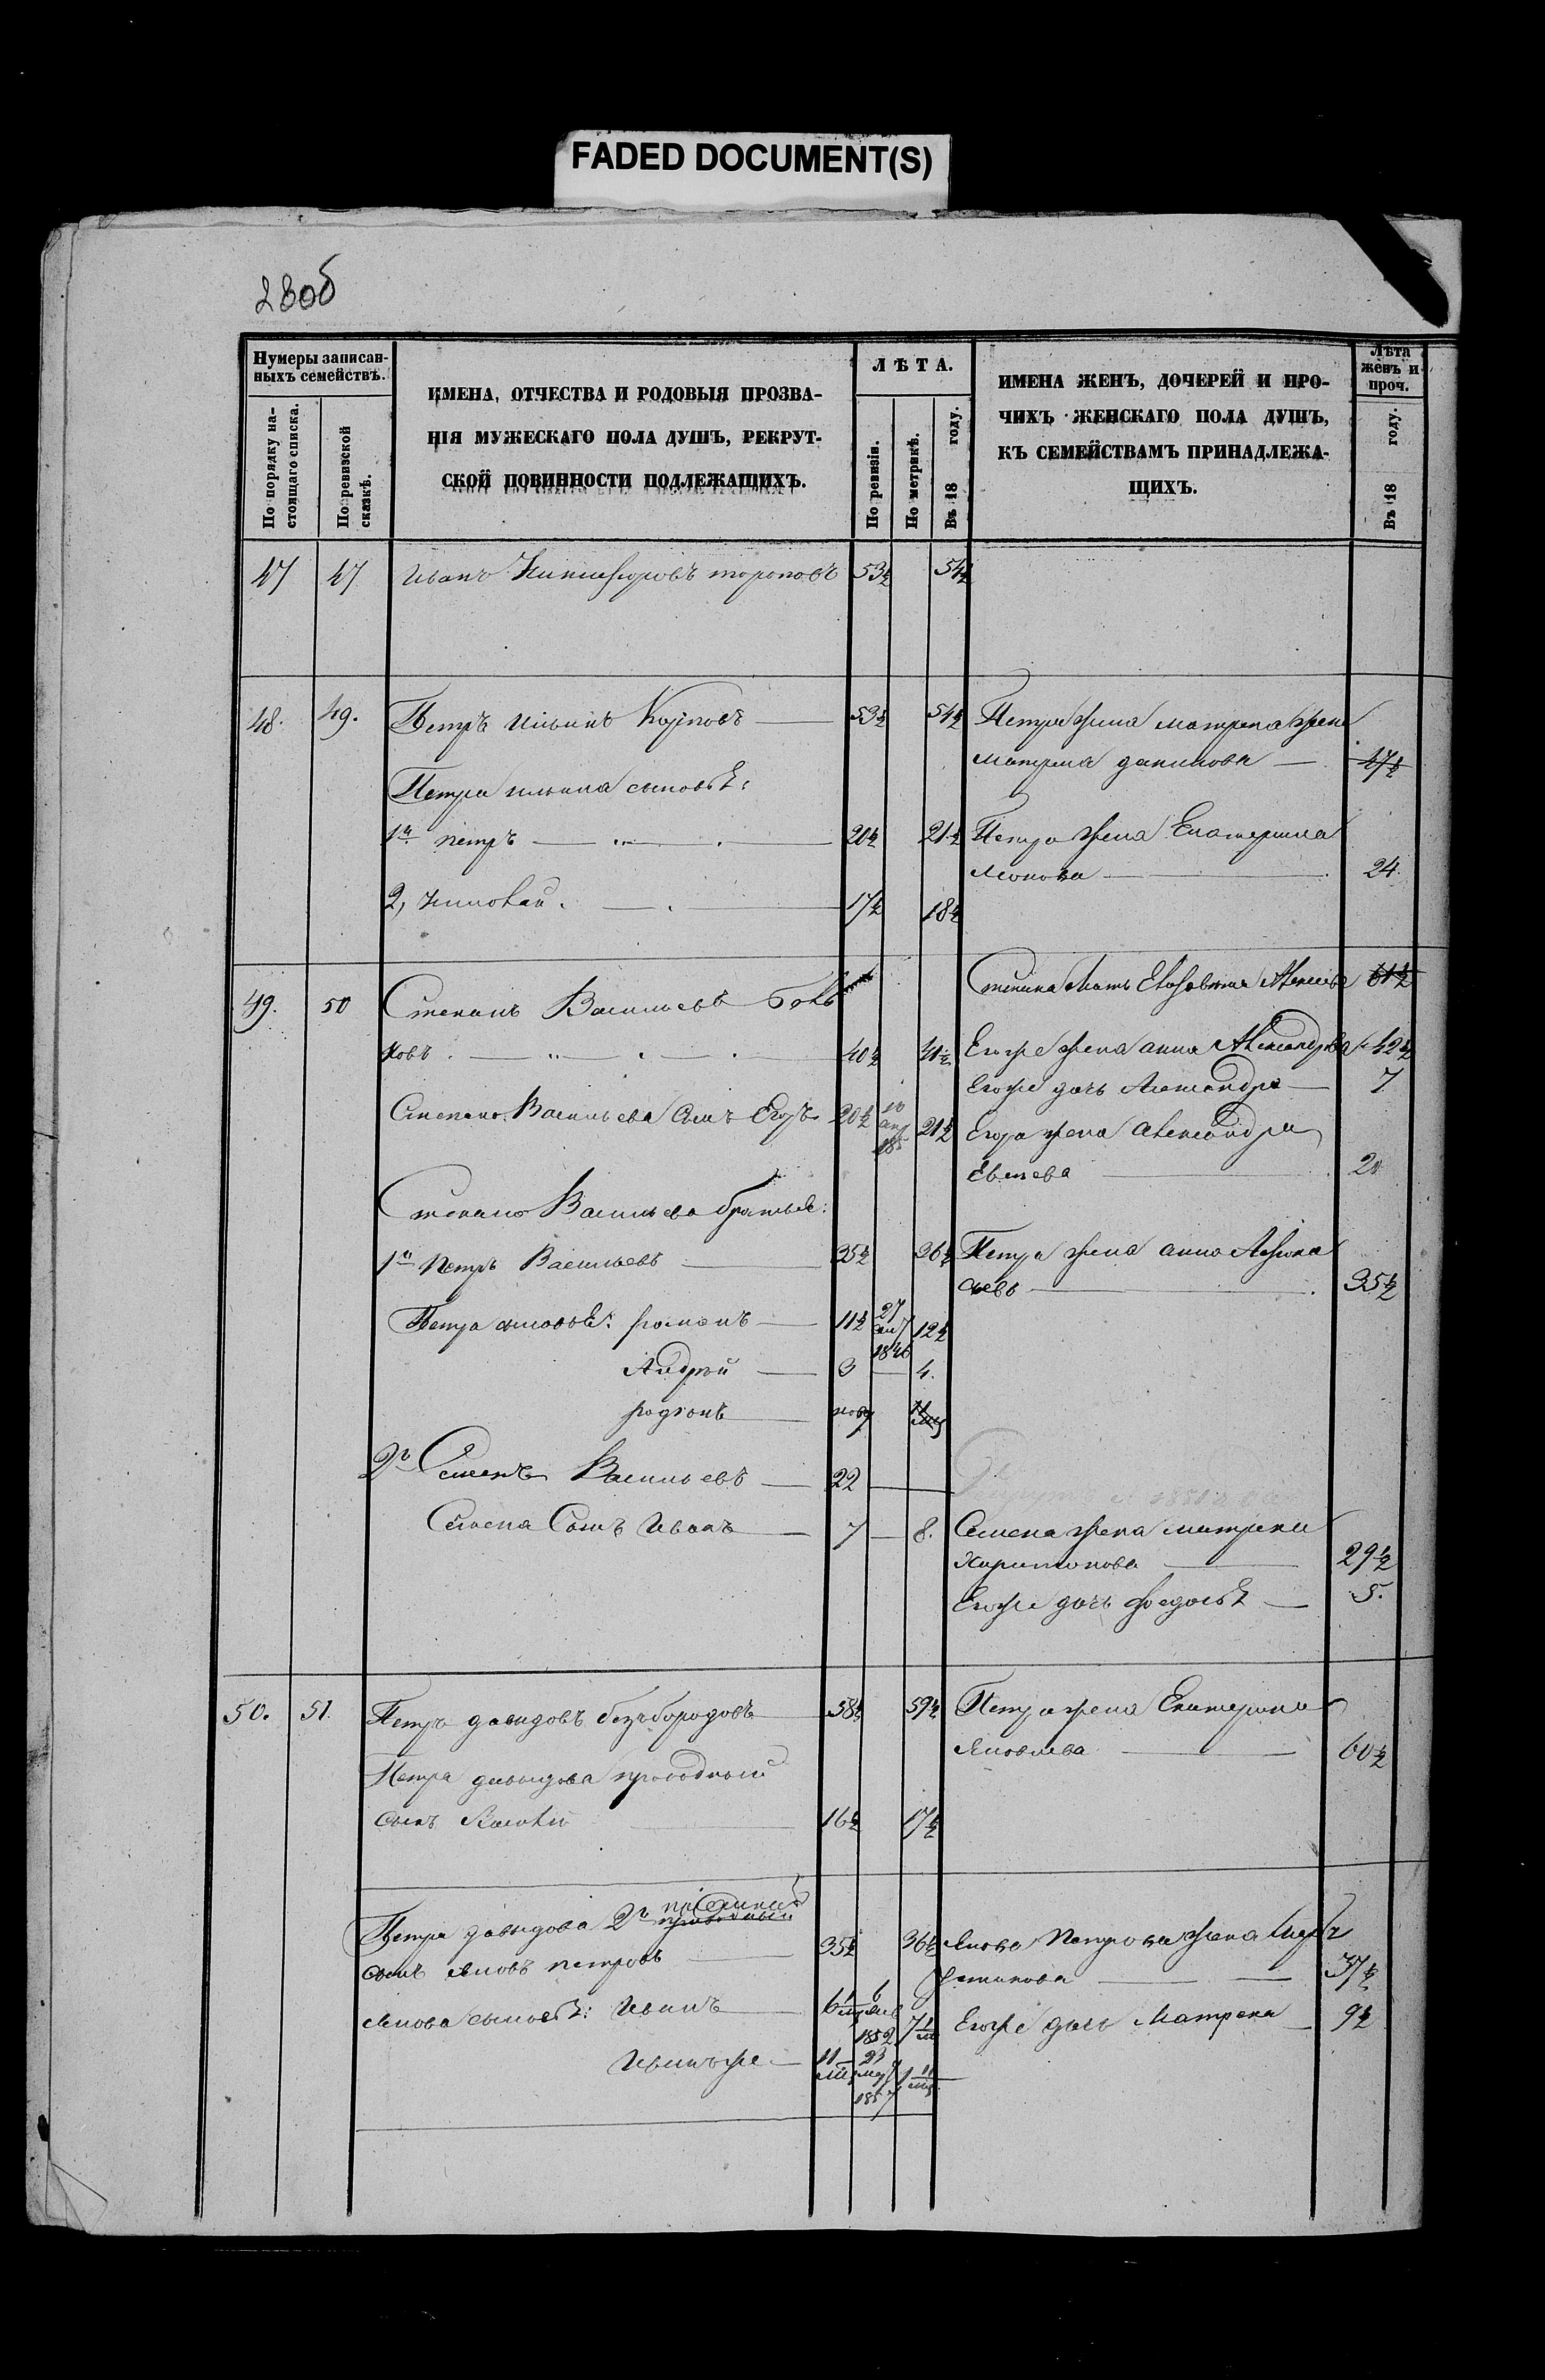 FADED DOCUMENT(S)
280б
Нумеры записан-
ныхъ семействъ.
По порядку на-
стоящаго списка.
По ревизской
сказкѣ.
ИМЕНА, ОТЧЕСТВА И РОДОВЫЯ ПРОЗВА-
НІЯ МУЖЕСКАГО ПОЛА ДУШЪ, РЕКРУТ-
СКОЙ ПОВИННОСТИ ПОДЛЕЖАЩИХЪ.
ЛѢТА.
По ревизіи.
По метрикѣ.
Въ 18 году.
ИМЕНА ЖЕНЪ, ДОЧЕРЕЙ И ПРО-
ЧИХЪ ЖЕНСКАГО ПОЛА ДУШЪ,
КЪ СЕМЕЙСТВАМЪ ПРИНАДЛЕЖА-
ЩИХЪ.
Лѣта
женъ и
проч.
Въ 18 году.
47 47 Иванъ Никифоровъ тороповъ 53½ 54½
48. 49. Петръ Ильинъ Карповъ 53½ 54½ Петра жена матрена
матрена данилова 47½
Петра ильина сыновьѣ:
1й петръ 20½ 21½ Петра жена Екатерина
Леонова 24
2, николай 17½ 18½
49. 50 Степанъ Васильевъ Степана мать Алексѣева 61½
ковъ 40½ 41½ Егоже жена анна Александрова 42½
Егоже дочь Александра 7
Степана Васильева сынъ Егоръ 20½ 21½ Егора жена Александра
20
Степана Васильева братья:
1й Петръ Васильевъ 35½ 36½ Петра жена анна
35½
Петра сыновьѣ: романъ 11½ 27 1846 12½
Андрей 3 4.
родіонъ
2й Семенъ Васильевъ 22
Семена Сынъ Иванъ 7 8. Семена жена матрена
Харитонова 29½
Егоже дочь федосьѣ 5.
50. 51. Петръ давыдовъ безъбородовъ 58½ 59½ Петра жена Екатерина
Яковлева 60½
Петра давыдова
сынъ 16½ 17½
Петра давыдова 2й приемный
сынъ яковъ петровъ 35½ 36½ Якова Петрова жена
37½
Якова сыновьѣ: Иванъ 6 1852 Егоже дочь Матрена 9½
Иванъ же 11 23 1857